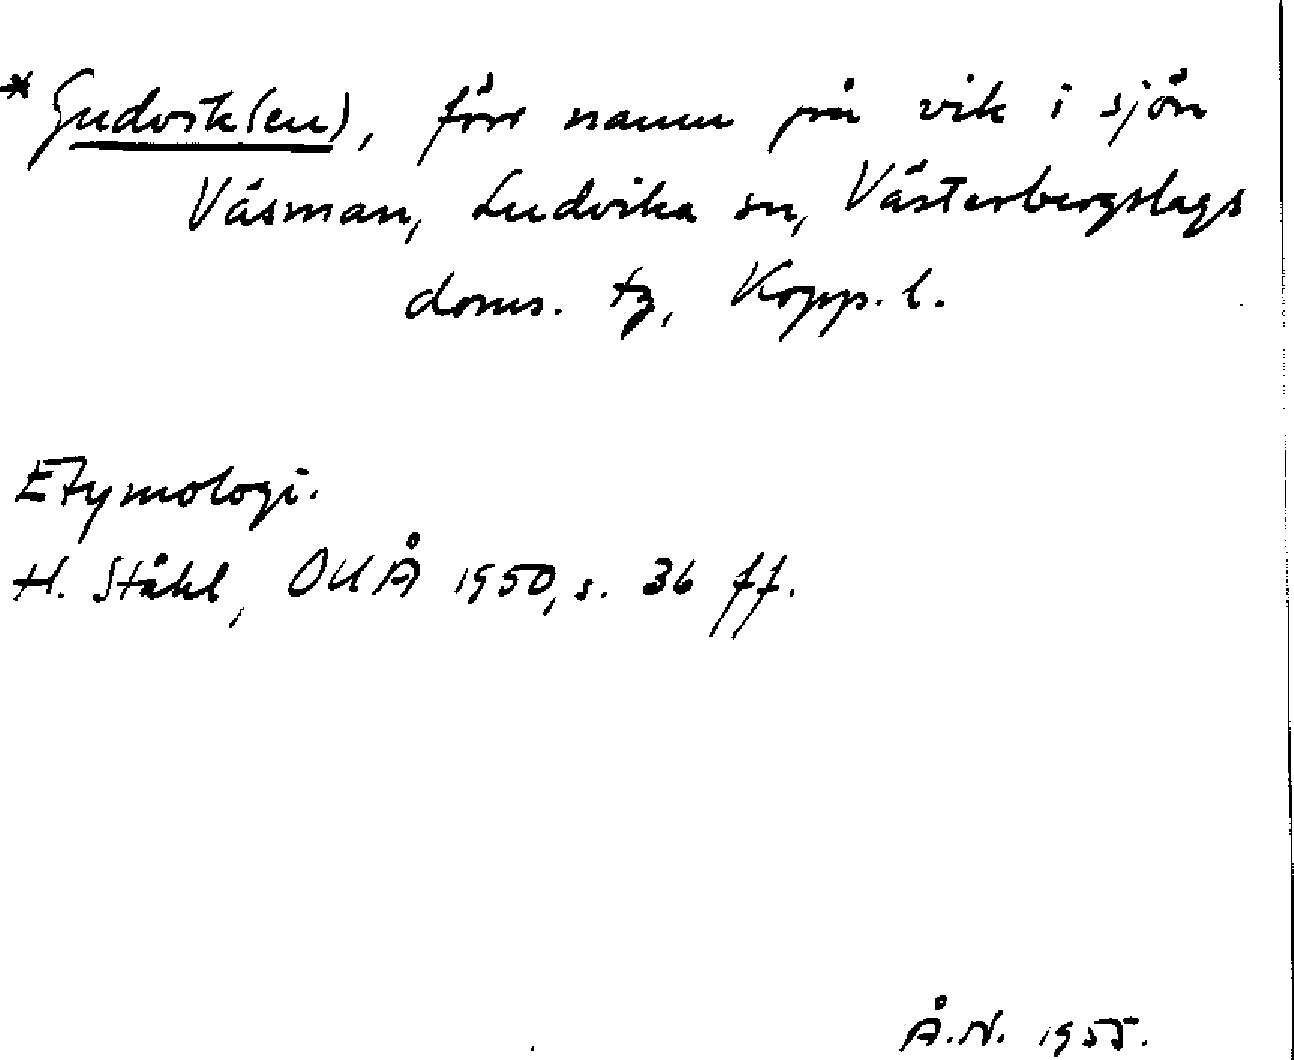 * Gudvik(en), förr namn på vik i sjön
Väsman, Ludvika sn, Västerbergslags
doms. tg, Kopp. l.
Etymologi.
H. Ståhl, OUÅ 1950, s. 36 ff.
Å.N. 1955.